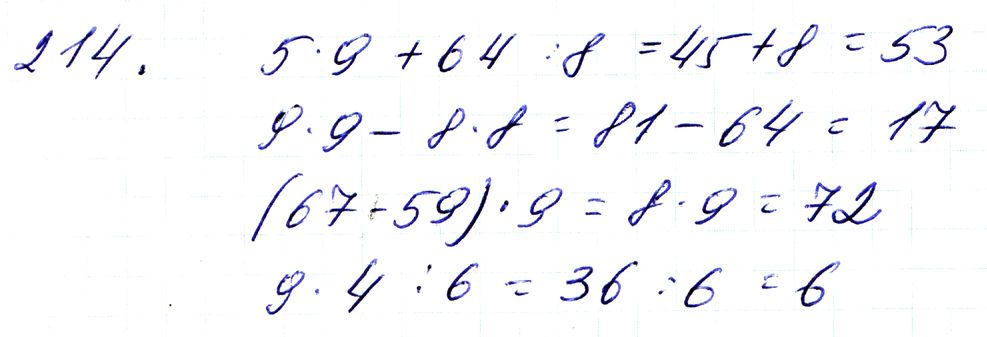 214. 5·9+64:8=45+8=53
9·9-8·8=81-64=17
(67-59)·9=8·9=72
9·4:6=36:6=6